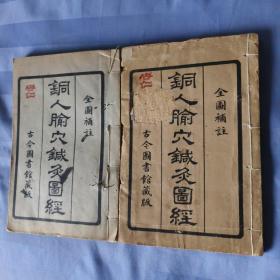 全圖補註
銅人腧穴鍼灸圖經
古今圖書館藏版
全圖補註
銅人腧穴鍼灸圖經
古今圖書館藏版